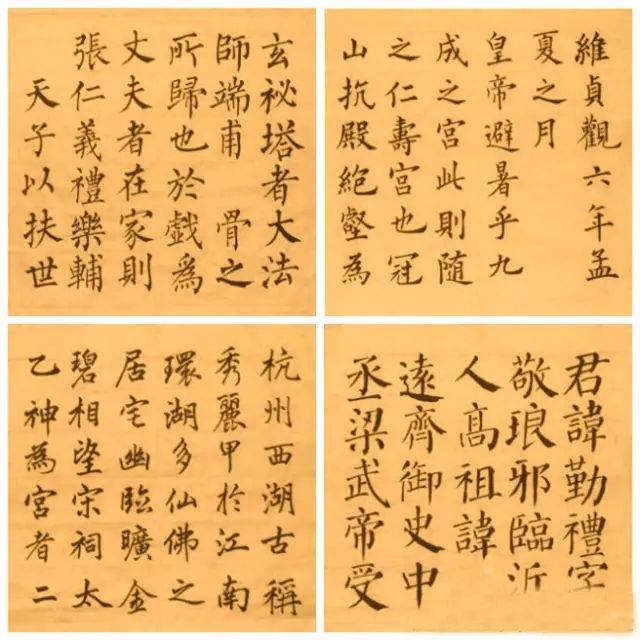 玄祕塔者大法
師端甫 骨之
所歸也於戲爲
丈夫者在家則
張仁義禮樂輔
天子以扶世
維貞觀六年孟
夏之月
皇帝避暑乎九
成之宮此則随
之仁壽宮也冠
山抗殿絶壑為
杭州西湖古稱
秀麗甲於江南
環湖多仙佛之
居宅幽臨曠金
碧相望宋祠太
乙神為宮者二
君諱勤禮字
敬琅邪臨沂
人高祖諱
遠齊御史中
丞梁武帝受